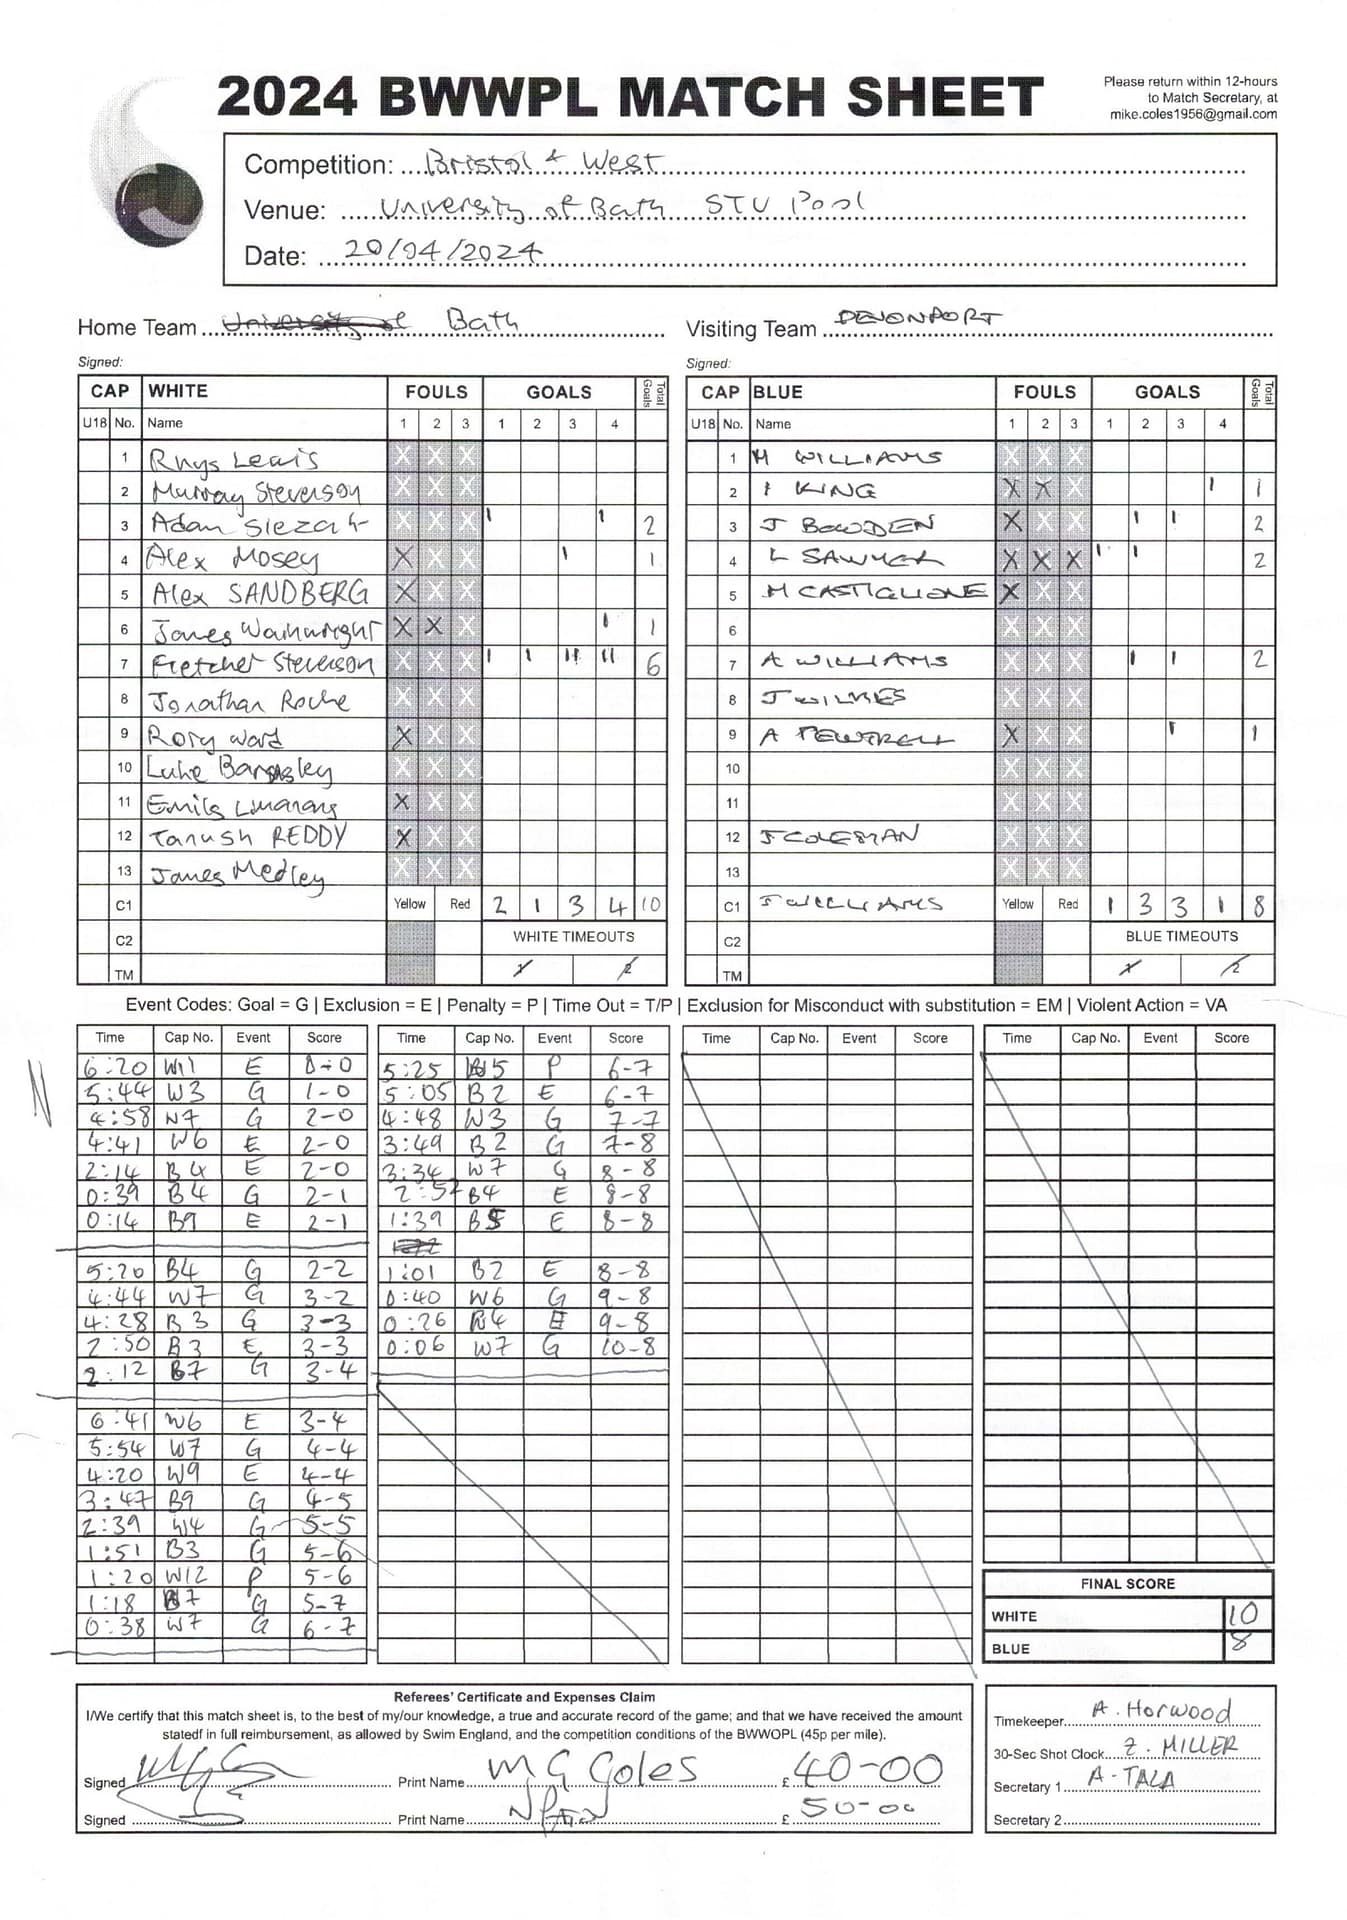 2024 BWWPL MATCH SHEET
Please return within 12-hours
to Match Secretary, at
mike.coles1956@gmail.com
Competition: Bristol & West
Venue: University of Bath STV Pool
Date: 20/04/2024
Home Team Bath
Visiting Team DEVONPORT
Signed:
Signed:
CAP WHITE FOULS GOALS Total Goals
U18 No. Name 1 2 3 1 2 3 4
1 Rhys Lewis X X X
2 Murray Stevenson X X X
3 Adam Slezak X X X I I 2
4 Alex Mosey X X X I 1
5 Alex SANDBERG X X X
6 James Wainwright X X X I 1
7 Fletcher Stevenson X X X I I II II 6
8 Jonathan Roche X X X
9 Rory Ward X X X
10 Luke Barnsley X X X
11 Emils X X X
12 Tanush REDDY X X X
13 James Medley X X X
C1 Yellow Red 2 1 3 4 10
C2 WHITE TIMEOUTS
TM 1 2
CAP BLUE FOULS GOALS Total Goals
U18 No. Name 1 2 3 1 2 3 4
1 M WILLIAMS X X X
2 I KING X X X I 1
3 J BOWDEN X X X I I 2
4 L SAWYER X X X I I 2
5 M CASTIGLIONE X X X
6 X X X
7 A WILLIAMS X X X I I 2
8 J WILMES X X X
9 A PEWTRELL X X X I 1
10 X X X
11 X X X
12 J COLEMAN X X X
13 X X X
C1 J WILLIAMS Yellow Red 1 3 3 1 8
C2 BLUE TIMEOUTS
TM 1 2
Event Codes: Goal = G | Exclusion = E | Penalty = P | Time Out = T/P | Exclusion for Misconduct with substitution = EM | Violent Action = VA
Time Cap No. Event Score
6:20 W11 E 0-0
5:44 W3 G 1-0
4:58 W7 G 2-0
4:41 W6 E 2-0
2:14 B4 E 2-0
0:39 B4 G 2-1
0:14 B9 E 2-1
5:20 B4 G 2-2
4:44 W7 G 3-2
4:28 B3 G 3-3
2:50 B3 E 3-3
2:12 B7 G 3-4
6:41 W6 E 3-4
5:54 W7 G 4-4
4:20 W9 E 4-4
3:47 B9 G 4-5
2:39 W4 G 5-5
1:51 B3 G 5-6
1:20 W12 P 5-6
1:18 B7 G 5-7
0:38 W7 G 6-7
Time Cap No. Event Score
5:25 W5 P 6-7
5:05 B2 E 6-7
4:48 W3 G 7-7
3:49 B2 G 7-8
3:34 W7 G 8-8
2:57 B4 E 8-8
1:39 B5 E 8-8
1:01 B2 E 8-8
0:40 W6 G 9-8
0:26 B4 E 9-8
0:06 W7 G 10-8
Time Cap No. Event Score
Time Cap No. Event Score
FINAL SCORE
WHITE 10
BLUE 8
Referees' Certificate and Expenses Claim
I/We certify that this match sheet is, to the best of my/our knowledge, a true and accurate record of the game; and that we have received the amount
statedf in full reimbursement, as allowed by Swim England, and the competition conditions of the BWWOPL (45p per mile).
Signed Print Name M G Coles £ 40-00
Signed Print Name £ 50-00
Timekeeper A. Horwood
30-Sec Shot Clock Z. MILLER
Secretary 1 A-TALA
Secretary 2